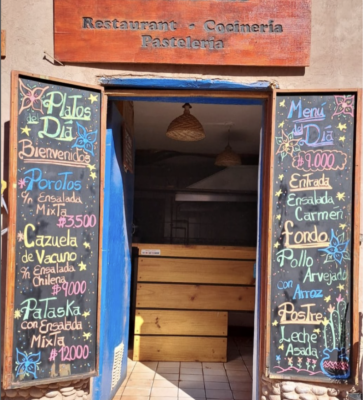 Restaurant - Cocineria
Pasteleria
Platos
del
Día
Bienvenidos
Porotos
c/n Ensalada
Mixta
$3.500
Cazuela
de Vacuno
c/n Ensalada
Chilena
$9.000
Pataska
con Ensalada
Mixta
$12.000
Menú
del Día
$9.000
Entrada
Ensalada
Carmen
fondo
Pollo
Arvejado
con
Arroz
Postre
Leche
Asada